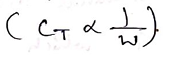 ( C_T ∝ 1/W ).